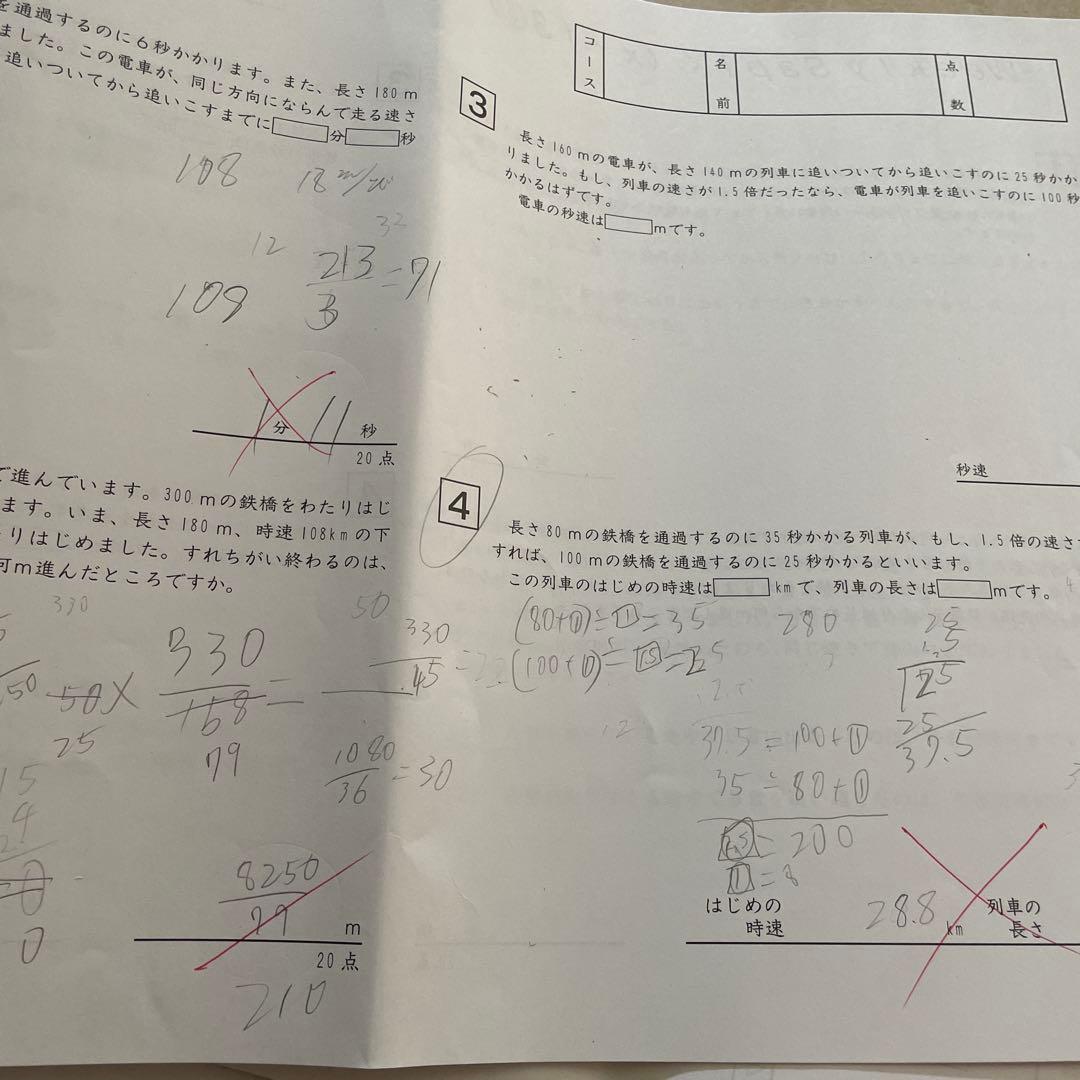 を通過するのに6秒かかります。また、長さ180m
ました。この電車が、同じ方向にならんで走る速さ
追いついてから追いこすまでに 分 秒
108 18m/
32
12 213/3=71
109
1分11秒
20点
で進んでいます。300mの鉄橋をわたりはじ
ます。いま、長さ180m、時速108kmの下
りはじめました。すれちがい終わるのは、
何m進んだところですか。
330
50
330
50 50× 330/158=
330/.45=
25
79
1080/36=30
15
4
0
0
8250/79 m
20点
210
コース
名前
点数
3
長さ160mの電車が、長さ140mの列車に追いついてから追いこすのに25秒かか
りました。もし、列車の速さが1.5倍だったなら、電車が列車を追いこすのに100秒
かかるはずです。
電車の秒速は mです。
秒速
4
長さ80mの鉄橋を通過するのに35秒かかる列車が、もし、1.5倍の速さ
すれば、100mの鉄橋を通過するのに25秒かかるといいます。
この列車のはじめの時速は kmで、列車の長さは mです。
(80+①)÷1=35 280
(100+①)÷1.5=
25
1.5
125
25
37.5
12
37.5=100+①
35=80+①
=200
1=8
はじめの時速 28.8 km
列車の長さ